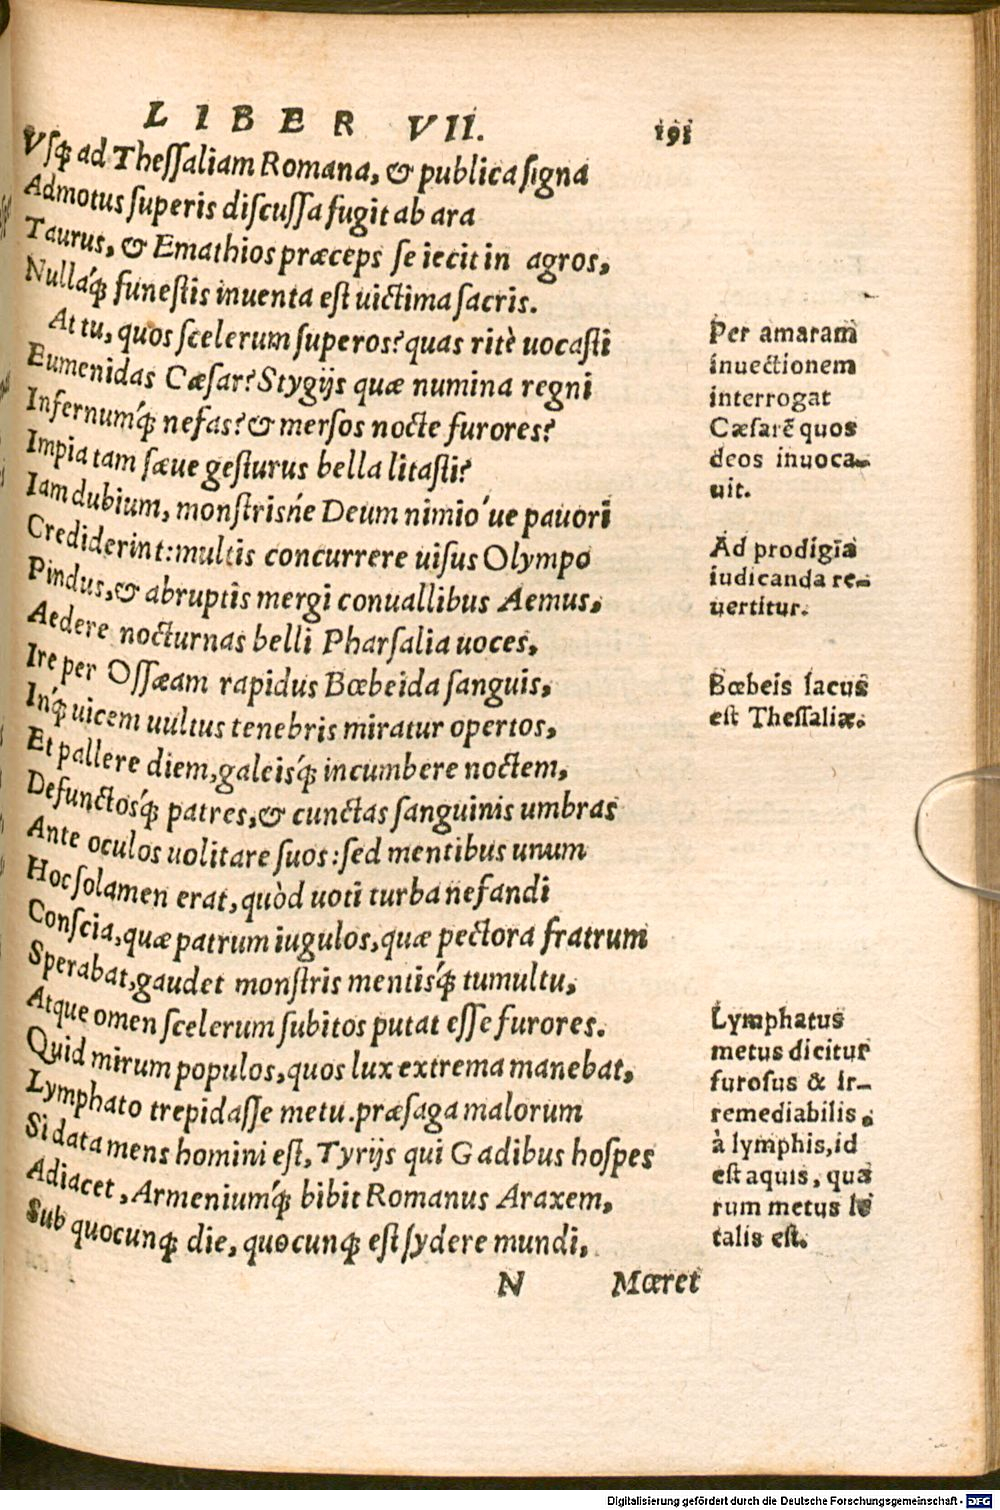 LIBER VII. 191
Vsq́; ad Thessaliam Romana, & publica signa
Admotus superis discussa fugit ab ara
Taurus, & Emathios præceps se iecit in agros,
Nullaq́; funestis inuenta est uictima sacris.
At tu, quos scelerum superos? quas ritè uocasti
Eumenidas Cæsar? Stygijs quæ numina regni
Infernumq́; nefas? & mersos nocte furores?
Impia tam sæue gesturus bella litasti?
Iam dubium, monstrisńe Deum nimio´ue pauori
Crediderint: multis concurrere uisus Olympo
Pindus, & abruptis mergi conuallibus Aemus,
Aedere nocturnas belli Pharsalia uoces,
Ire per Ossæam rapidus Bœbeida sanguis,
Inq́; uicem uultus tenebris miratur opertos,
Et pallere diem, galeisq́; incumbere noctem,
Defunctosq́; patres, & cunctas sanguinis umbras
Ante oculos uolitare suos: sed mentibus unum
Hoc solamen erat, quòd uoti turba nefandi
Conscia, quæ patrum iugulos, quæ pectora fratrum
Sperabat, gaudet monstris mentisq́; tumultu,
Atque omen scelerum subitos putat esse furores.
Quid mirum populos, quos lux extrema manebat,
Lymphato trepidasse metu. præsaga malorum
Si data mens homini est, Tyrijs qui Gadibus hospes
Adiacet, Armeniumq́; bibit Romanus Araxem,
Sub quocunq; die, quocunq; est sydere mundi,
N Mœret
Per amaram
inuectionem
interrogat
Cæsarē quos
deos inuoca-
uit.
Ad prodigia
iudicanda re-
uertitur.
Bœbeis lacus
est Thessaliæ.
Lymphatus
metus dicitur
furosus & ir-
remediabilis,
à lymphis, id
est aquis, qua
rum metus le
talis est.
Digitalisierung gefördert durch die Deutsche Forschungsgemeinschaft - DFG